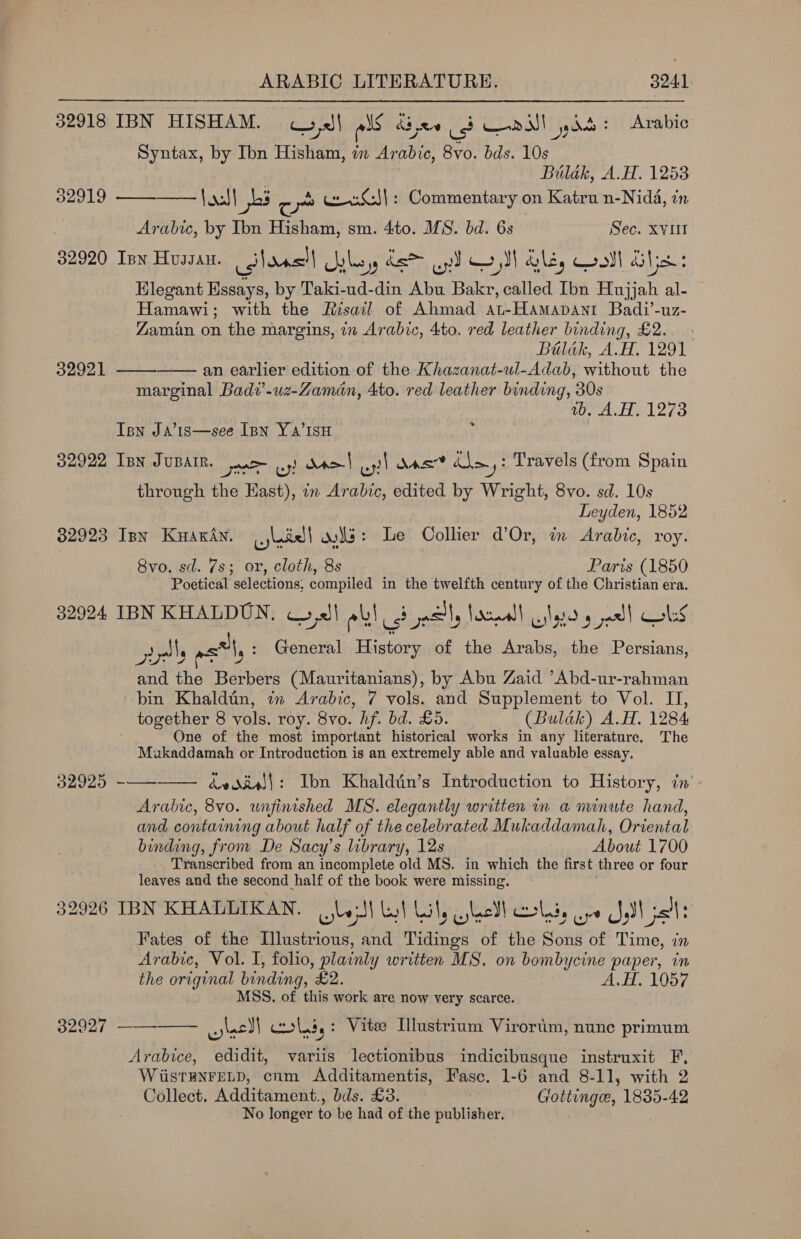 ARABIC LITERATURE. 3241
32918 IBN HISHAM. شذور الذهب في معرفة كلام العرب : Arabic
Syntax, by Ibn Hisham, in Arabic, 8vo. bds. 10s
Bulák, A.H. 1253
32919 ——— النكت شرح قطر الندا : Commentary on Katru n-Nidá, in
Arabic, by Ibn Hisham, sm. 4to. MS. bd. 6s Sec. XVIII
32920 IBN HUJJAH. خزانة الادب وغاية الارب لابن حجة ورسايل الهمداني :
Elegant Essays, by Taki-ud-din Abu Bakr, called Ibn Hujjah al-
Hamawi; with the Risail of Ahmad AL-HAMADANI Badi’-uz-
Zamán on the margins, in Arabic, 4to. red leather binding, £2.
Bulák, A.H. 1291
32921 ——— an earlier edition of the Khazanat-ul-Adab, without the
marginal Badi’-uz-Zamán, 4to. red leather binding, 30s
ib. A.H. 1273
IBN JA’IS—see IBN YA’ISH
32922 IBN JUBAIR. رحلة محمد ابن احمد بن جبير : Travels (from Spain
through the East), in Arabic, edited by Wright, 8vo. sd. 10s
Leyden, 1852
32923 IBN KHAKÁN. قلايد العقيان : Le Collier d’Or, in Arabic, roy.
8vo. sd. 7s; or, cloth, 8s Paris (1850
Poetical selections, compiled in the twelfth century of the Christian era.
32924 IBN KHALDÚN. كتاب العبر و ديوان المبتدا والخبر في ايام العرب
والعجم والبربر : General History of the Arabs, the Persians,
and the Berbers (Mauritanians), by Abu Zaid ’Abd-ur-rahman
bin Khaldún, in Arabic, 7 vols. and Supplement to Vol. II,
together 8 vols. roy. 8vo. hf. bd. £5. (Bulák) A.H. 1284
One of the most important historical works in any literature. The
Mukaddamah or Introduction is an extremely able and valuable essay.
32925 ——— المقدمة : Ibn Khaldún’s Introduction to History, in
Arabic, 8vo. unfinished MS. elegantly written in a minute hand,
and containing about half of the celebrated Mukaddamah, Oriental
binding, from De Sacy’s library, 12s About 1700
Transcribed from an incomplete old MS. in which the first three or four
leaves and the second half of the book were missing.
32926 IBN KHALLIKAN. الجز الاول من وفيات الاعيان وانبا ابنا الزمان :
Fates of the Illustrious, and Tidings of the Sons of Time, in
Arabic, Vol. I, folio, plainly written MS. on bombycine paper, in
the original binding, £2. A.H. 1057
MSS. of this work are now very scarce.
32927 ——— وفيات الاعيان : Vitæ Illustrium Virorúm, nunc primum
Arabice, edidit, variis lectionibus indicibusque instruxit F.
WüSTENFELD, cum Additamentis, Fasc. 1-6 and 8-11, with 2
Collect. Additament., bds. £3. Gottingæ, 1835-42
No longer to be had of the publisher.